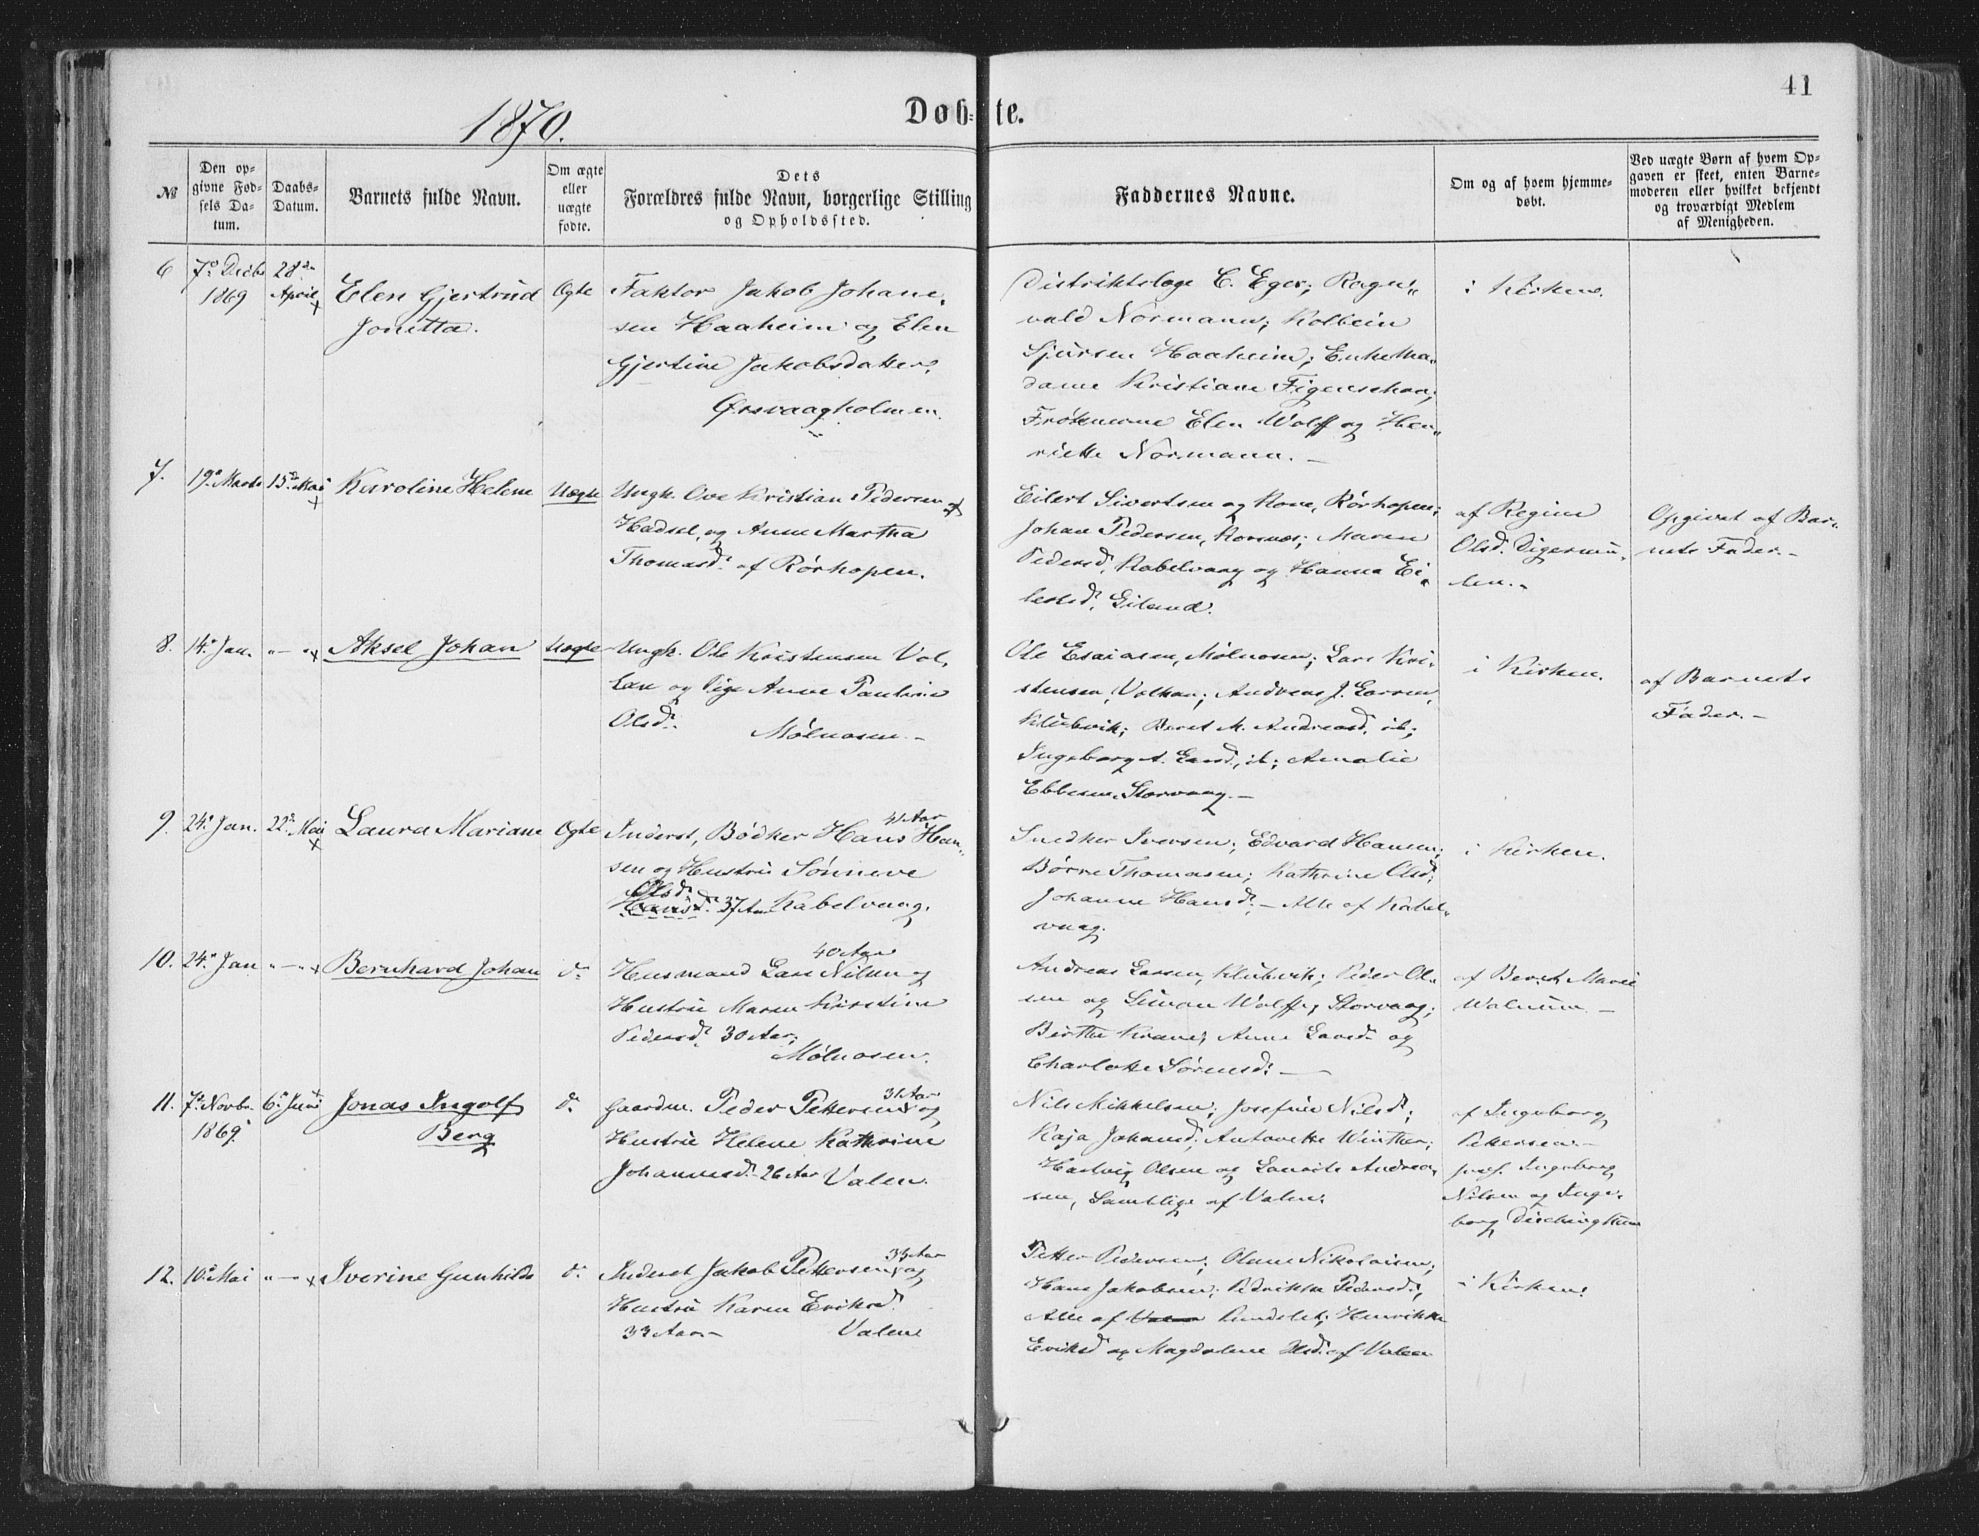 41
1870.
Døb- te.
№
Den op-
givne Fød-
sels Da-
tum.
Daabs-
Datum.
Barnets fulde Navn.
Om ægte
eller
uægte
fødte.
Dets
Forældres fulde Navn, borgerlige Stilling
og Opholdssted.
Faddernes Navne.
Om og af hvem hjemme-
døbt.
Ved uægte Børn af hvem Op-
gaven er skeet, enten Barne-
moderen eller hvilket bekjendt
og troværdigt Medlem
af Menigheden.
6
7de Decbr
1869
28de
April
Elen Gjertrud
Jonetta.
Ægte
Faktor Jakob Johane-
sen Haaheim og Elen
Gjertine Jakobsdatter,
Ørsvaagholmen.
Distriktslæge C. Eger; Ragn-
vald Normann; Kolbein
Sjursen Haaheim; Enke Ma-
dame Kristiane Figenschou;
Frøknerne Elen Wolff og Hen-
riette Normann. –
i Kirken.
7.
19de Marts
15de Mai
Karoline Helene
Uægte
Ungk. Ove Kristian Pedersen af
Hadsel, og Anne Martha
Thomasd. af Rørhopen.
Eilert Sivertsen og Kone, Rørhopen;
Johan Pedersen, Korsnæs; Maren
Pedersd. Kabelvaag og Hanna Ei-
lertsd.
af Regine
Olsd. Digermu-
len. –
Opgivet af Bar-
nets Fader. –
8.
14de Jan.
" – "
Aksel Johan
Uægte
Ungk. Ole Kristensen Vol-
og Pige Anne Pauline
Olsd.
Mølnosen. –
Ole Esaiasen, Mølnosen; Lars Kri-
stensen, Andreas J. Larsen,
Klubvik; Beret M. Andreasd. ib;
Ingeborg A. Larsd, ib; Amalie
Ebbesen, Storvaag. –
i Kirken.
af Barnets
Fader. –
9.
24de Jan.
22de Mai
Laura Mariane
Ægte
41 Aar
Inderst, Bødker Hans Han-
sen og Hustru Sønneve
Olsd.
Hansd. 37 Aar Kabelvaag.
Snedker Iversen; Edvard Hansen;
Børre Thomasen; Kathrine Olsd;
Johanne Hansd; – Alle af Kabel-
vaag.
i Kirken.
10.
24de Jan
" – "
Bernhard Johan
do
40 Aar
Husmand Lars Nilsen og
Hustru Maren Kirstine
Pedersd. 30 Aar;
Mølnosen.
Andreas Larsen, Klubvik; Peder Ol-
sen og Simon Wolff, Storvaag;
Birthe Krane; Anne Larsd. og
Charlotte Sørensd. –
af Berit Marie
Walnum –
11.
7de Novbr
1869
6te Juni
Jonas Ingolf
Berg
do
31 Aar
Gaardm. Peder Pettersen og
Hustru Helene Kathrine
Johannesd. 26 Aar Valen.
Nils Mikkelsen; Josefine Nilsd;
Kaja Johansd; Antonette Winther;
Hartvig Olsen og Laurits Andrea-
sen, Samtlige af Valen.
af Ingeborg
Pettersen –
Ingeborg
Nilsen og Inge-
borg
12.
10de Mai
" – "
Iverine Gunhilde
do
33 Aar
Inderst Jakob Pettersen og
Hustru Karen Eriksd.
33 Aar –
Valen
Petter Pedersen; Olane Nikolaisen;
Hans Jakobsen; Pedrikke Pedersd;
Alle af Valen Henrikke
Eriksd og Magdalene Nilsd. af Valen
i Kirken.